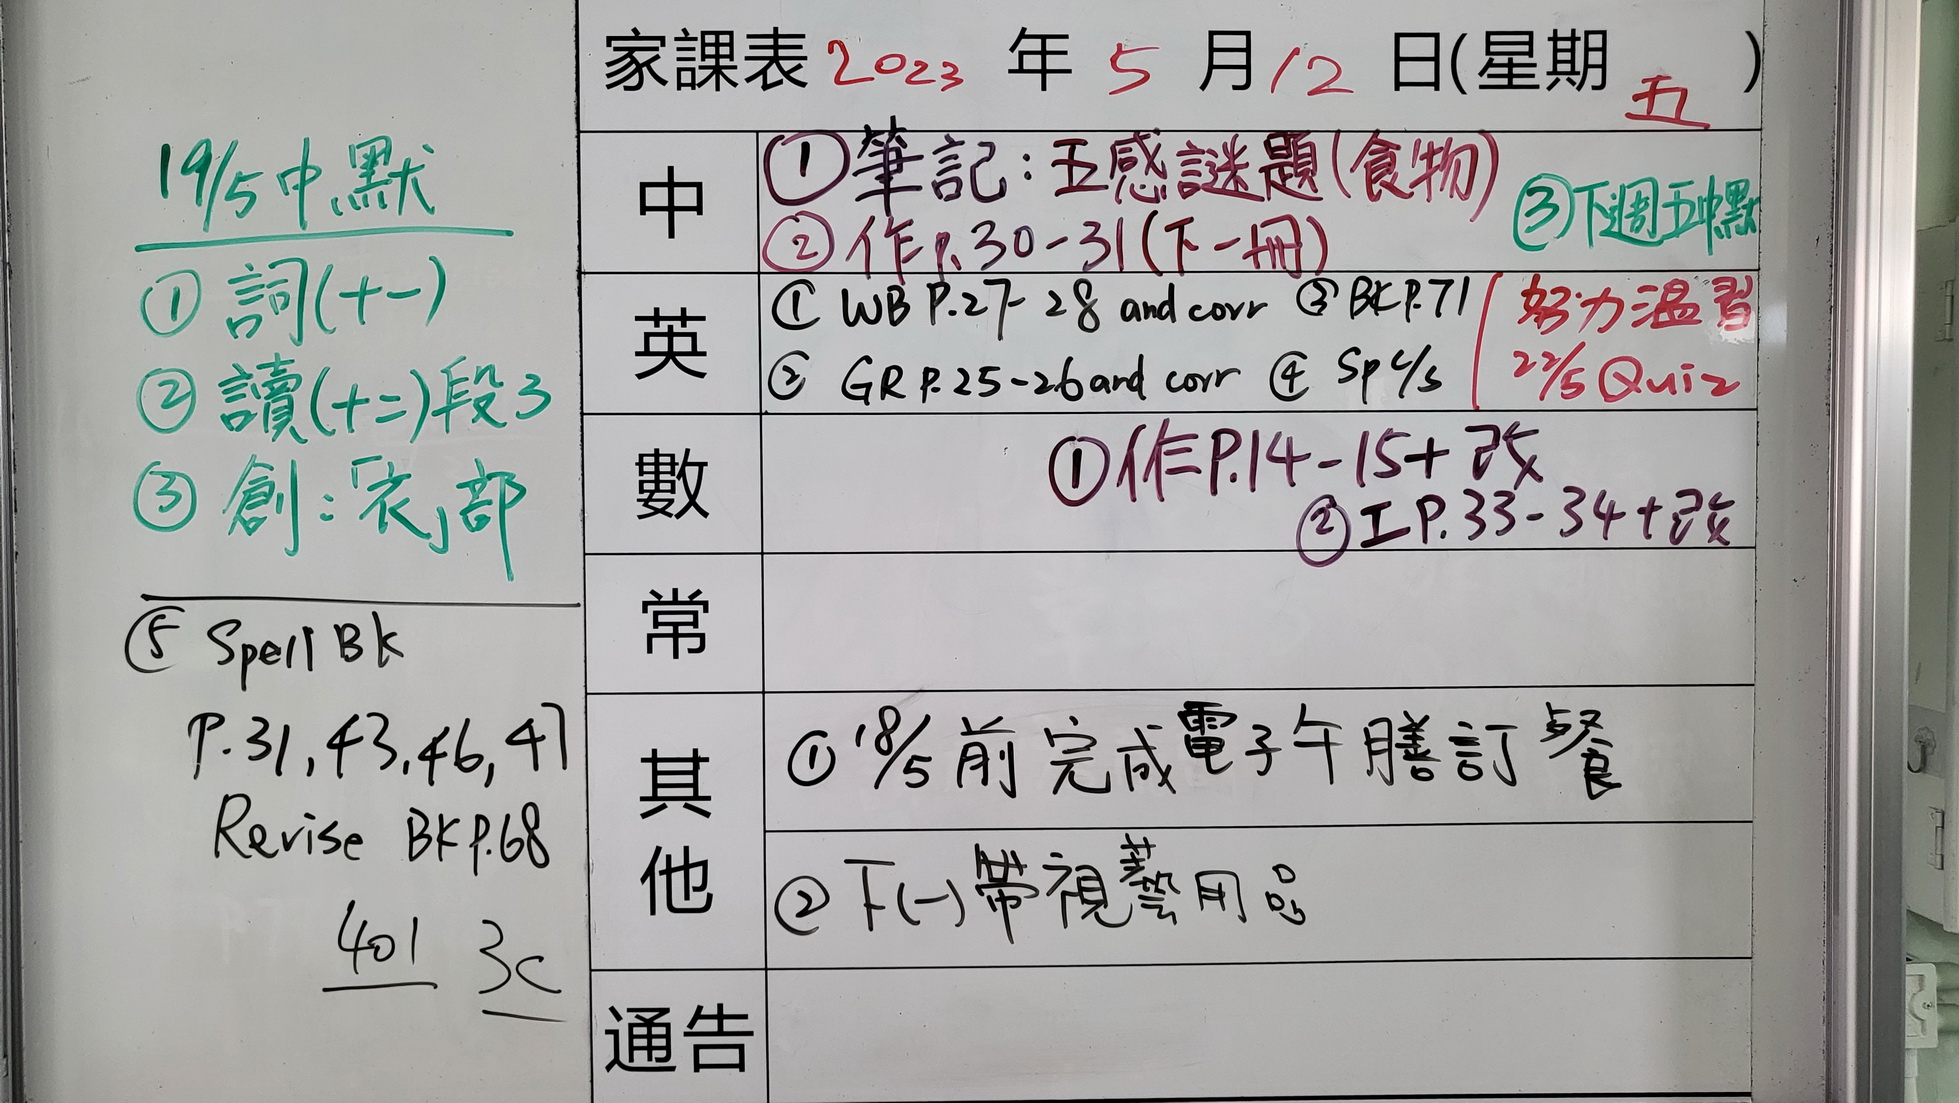 家課表 2023 年 5 月 12 日(星期 五 )
19/5 中默
① 詞(十一)
② 讀(十二)段3
③ 創:「衣」部
⑤ Spell BK
P.31, 43, 46, 47
Revise BK P.68
401 3C
中
① 筆記:五感謎題(食物)
② 作P.30-31(下一冊)
③下週五中默
英
① WB P.27-28 and corr ③ BK P.71
② GR P.25-26 and corr ④ Sp c/s
努力溫習
22/5 Quiz
數
①作P.14-15+改
②工P.33-34+改
常
其他
① 18/5 前完成電子午膳訂餐
② 下(一)帶視藝用品
通告